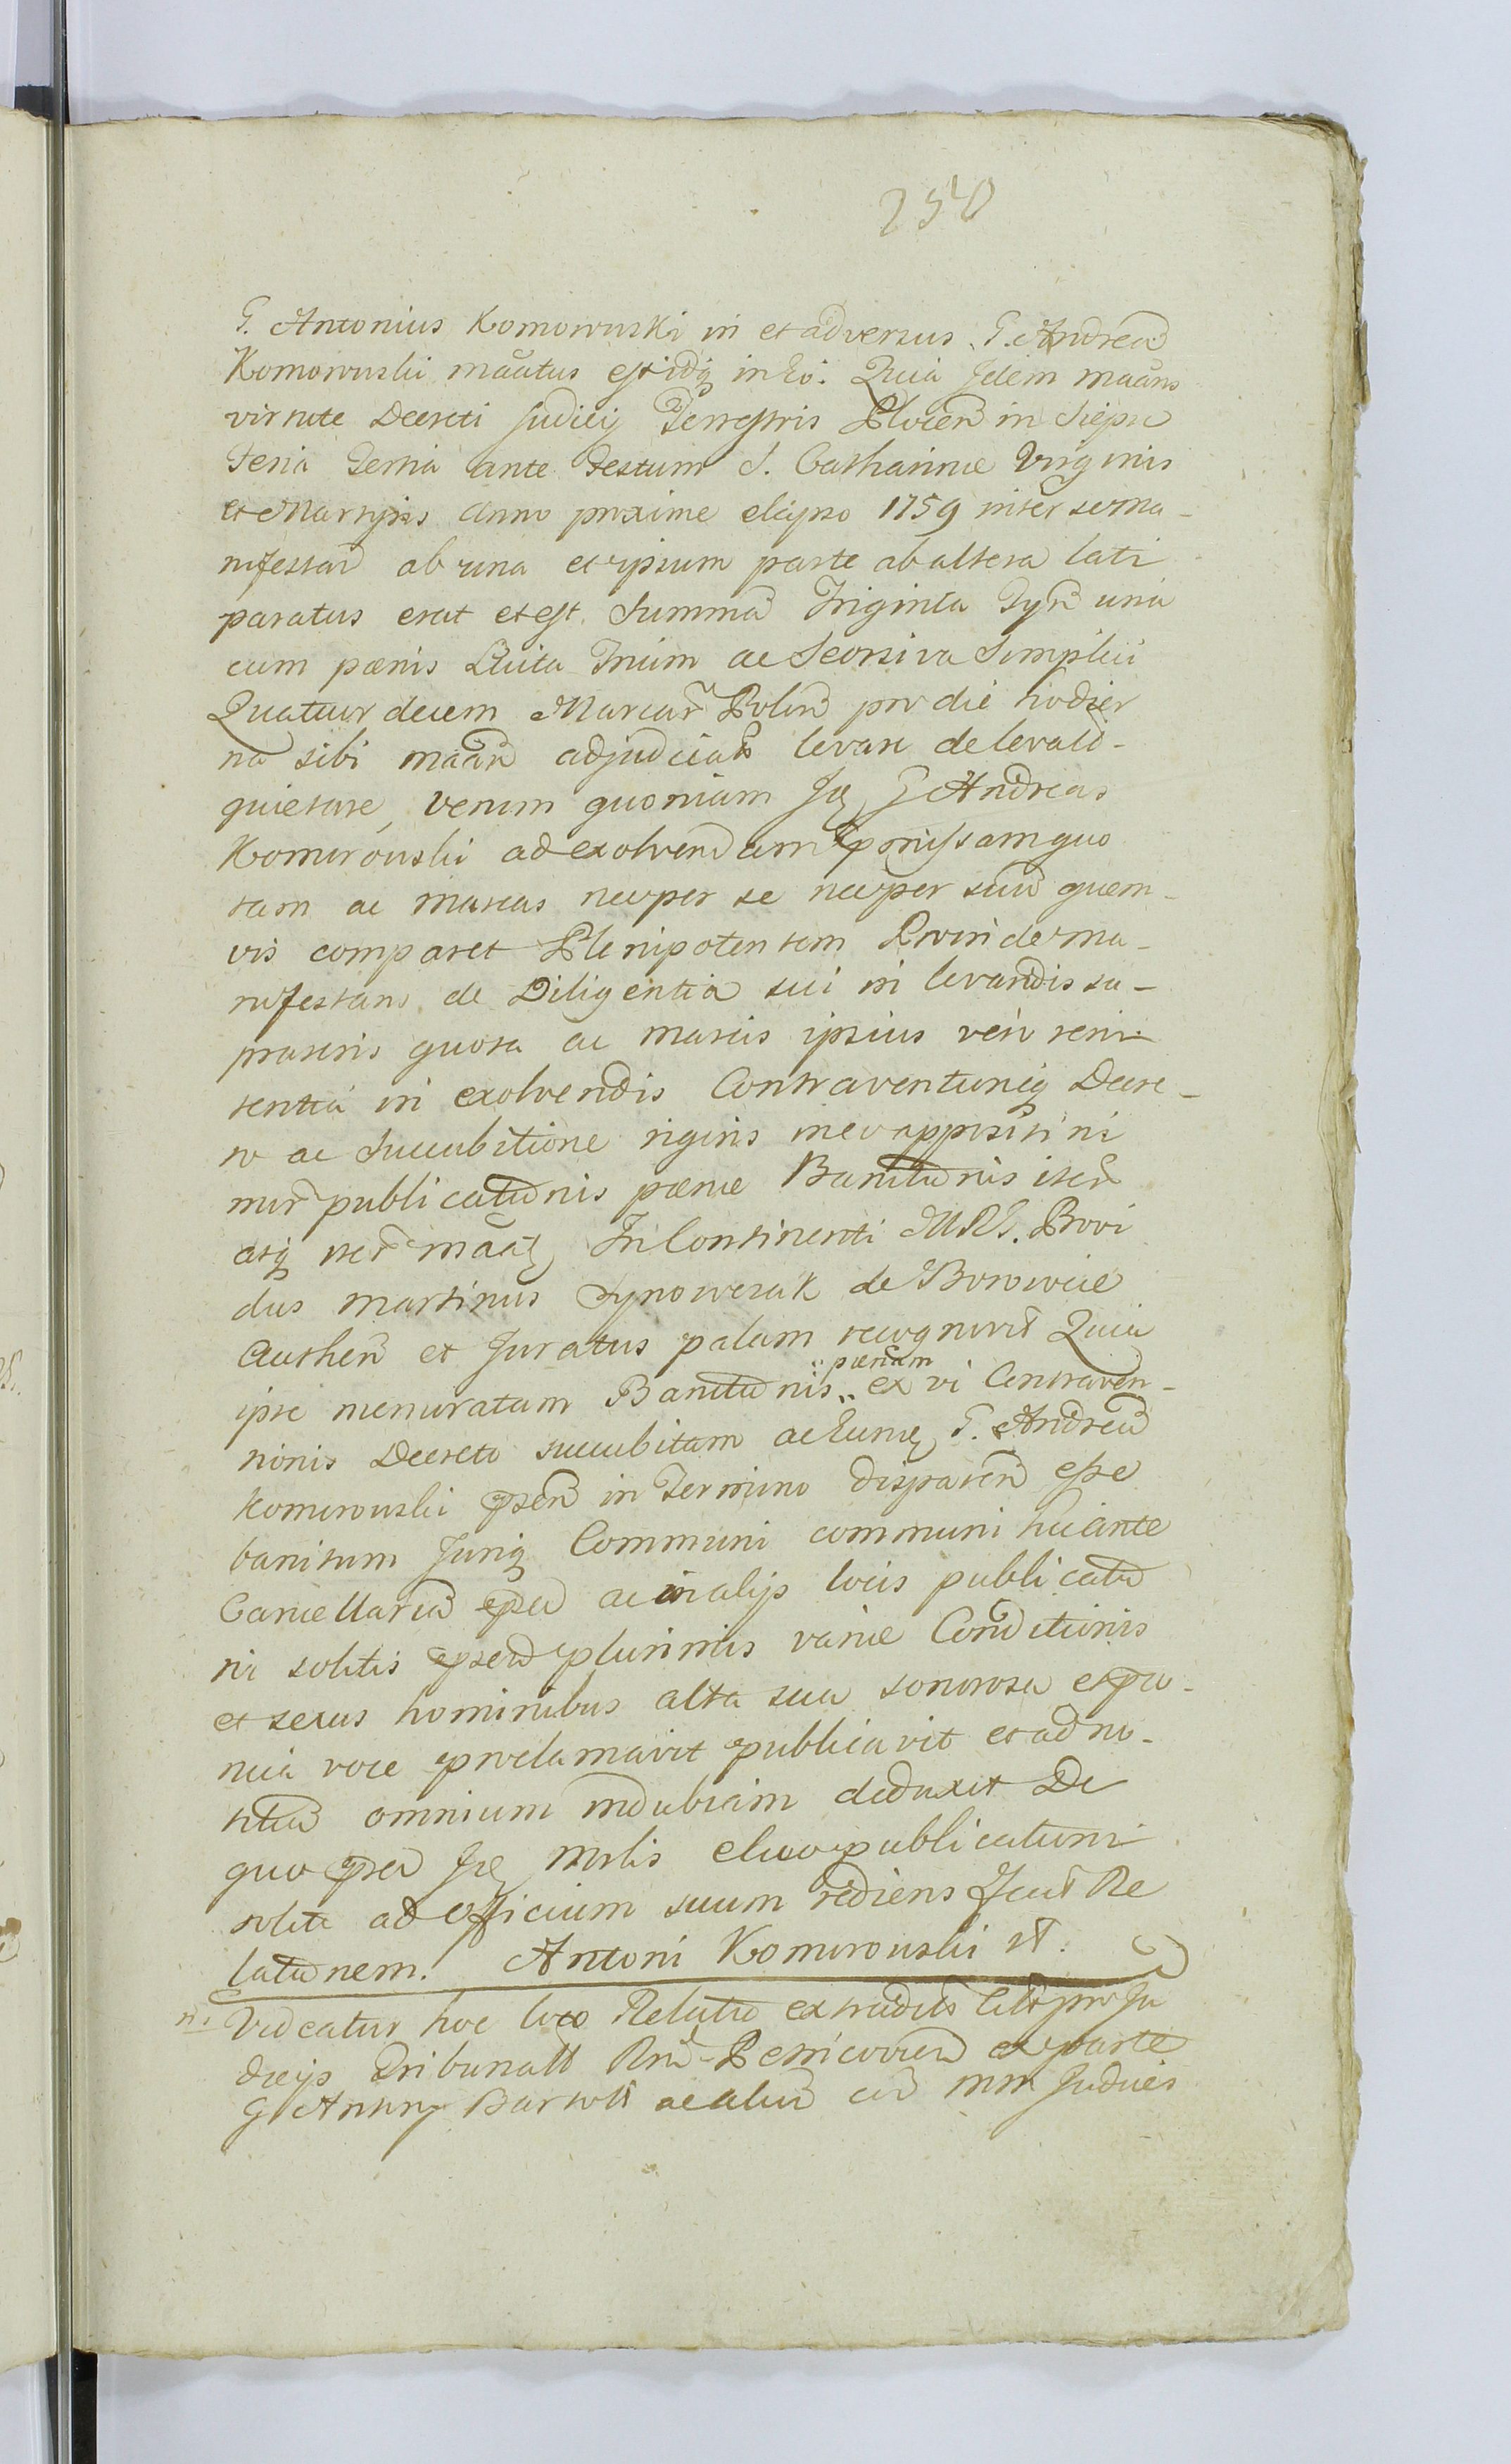 250
G. Antonius Komorowski in et adversus G. Andream
Komorowski mãatus est idq in Eo. Quia Idem maãns
virtute Decreti Judicij Terrestris Plocen in Sieprc
Feria Tertia ante Festum S. Catharinae Virginis
et Martyris Anno proxime elapso 1759 inter se ma-
nifestan ab una et ipsum parte ab altera lati
paratus erat et est Summa Triginta Tynf una
cum paenis Luita Trium ac Seorsiva Simplici
Quatuor decem Marcar Polon pro die hodier
na sibi maãn adjudicat levare de levatis
quietare, verum quoniam Iq G Andreas
Komorowski ad exolvendam pmissam quo
tam ac marcas nec per se nec per suum quem-
vis comparet Plenipotentem Proinde ma-
nifestans de Diligentia sui in levandis su-
prascris quota ac marcis ipsius vero reni-
tentia in exolvendis Contraventioneq Decre-
to ac Succubitione rigoris inibi appositi ni
mir publicationis paenae Banitionis iter
atq iter mãat, In Continenti MRG. Provi
dus Martinus Synowczak de Borowice
Authen et Juratus palam recognovit Quia
ipse memoratam Banitionis „paenam„ ex vi Contraven-
tionis Decreto succubitam ac Eumq G. Andream
Komorowski psen in Termino disparen esse
banitum Juriq Communi communi hic ante
Cancellariam psen ac in alijs locis publicatio
ni solitis psend plurimis variae Conditionis
et sexus hominibus alta sua sonorosa espro-
nua voce proclamavit publicavit et ad no-
titiam omnium indubiam deduxit De
quo psen Iq Mnlis eluo publicationi
solito ad officium suum rediens fecit Re
lationem. Antoni Komorowski st.
n. Videatur hoc loco Relatio extraditts Citt pro Ju
dicijs Tribunall Rnd Petricovien ex parte
G Antony Bartolt ac aliou cu mm Judices